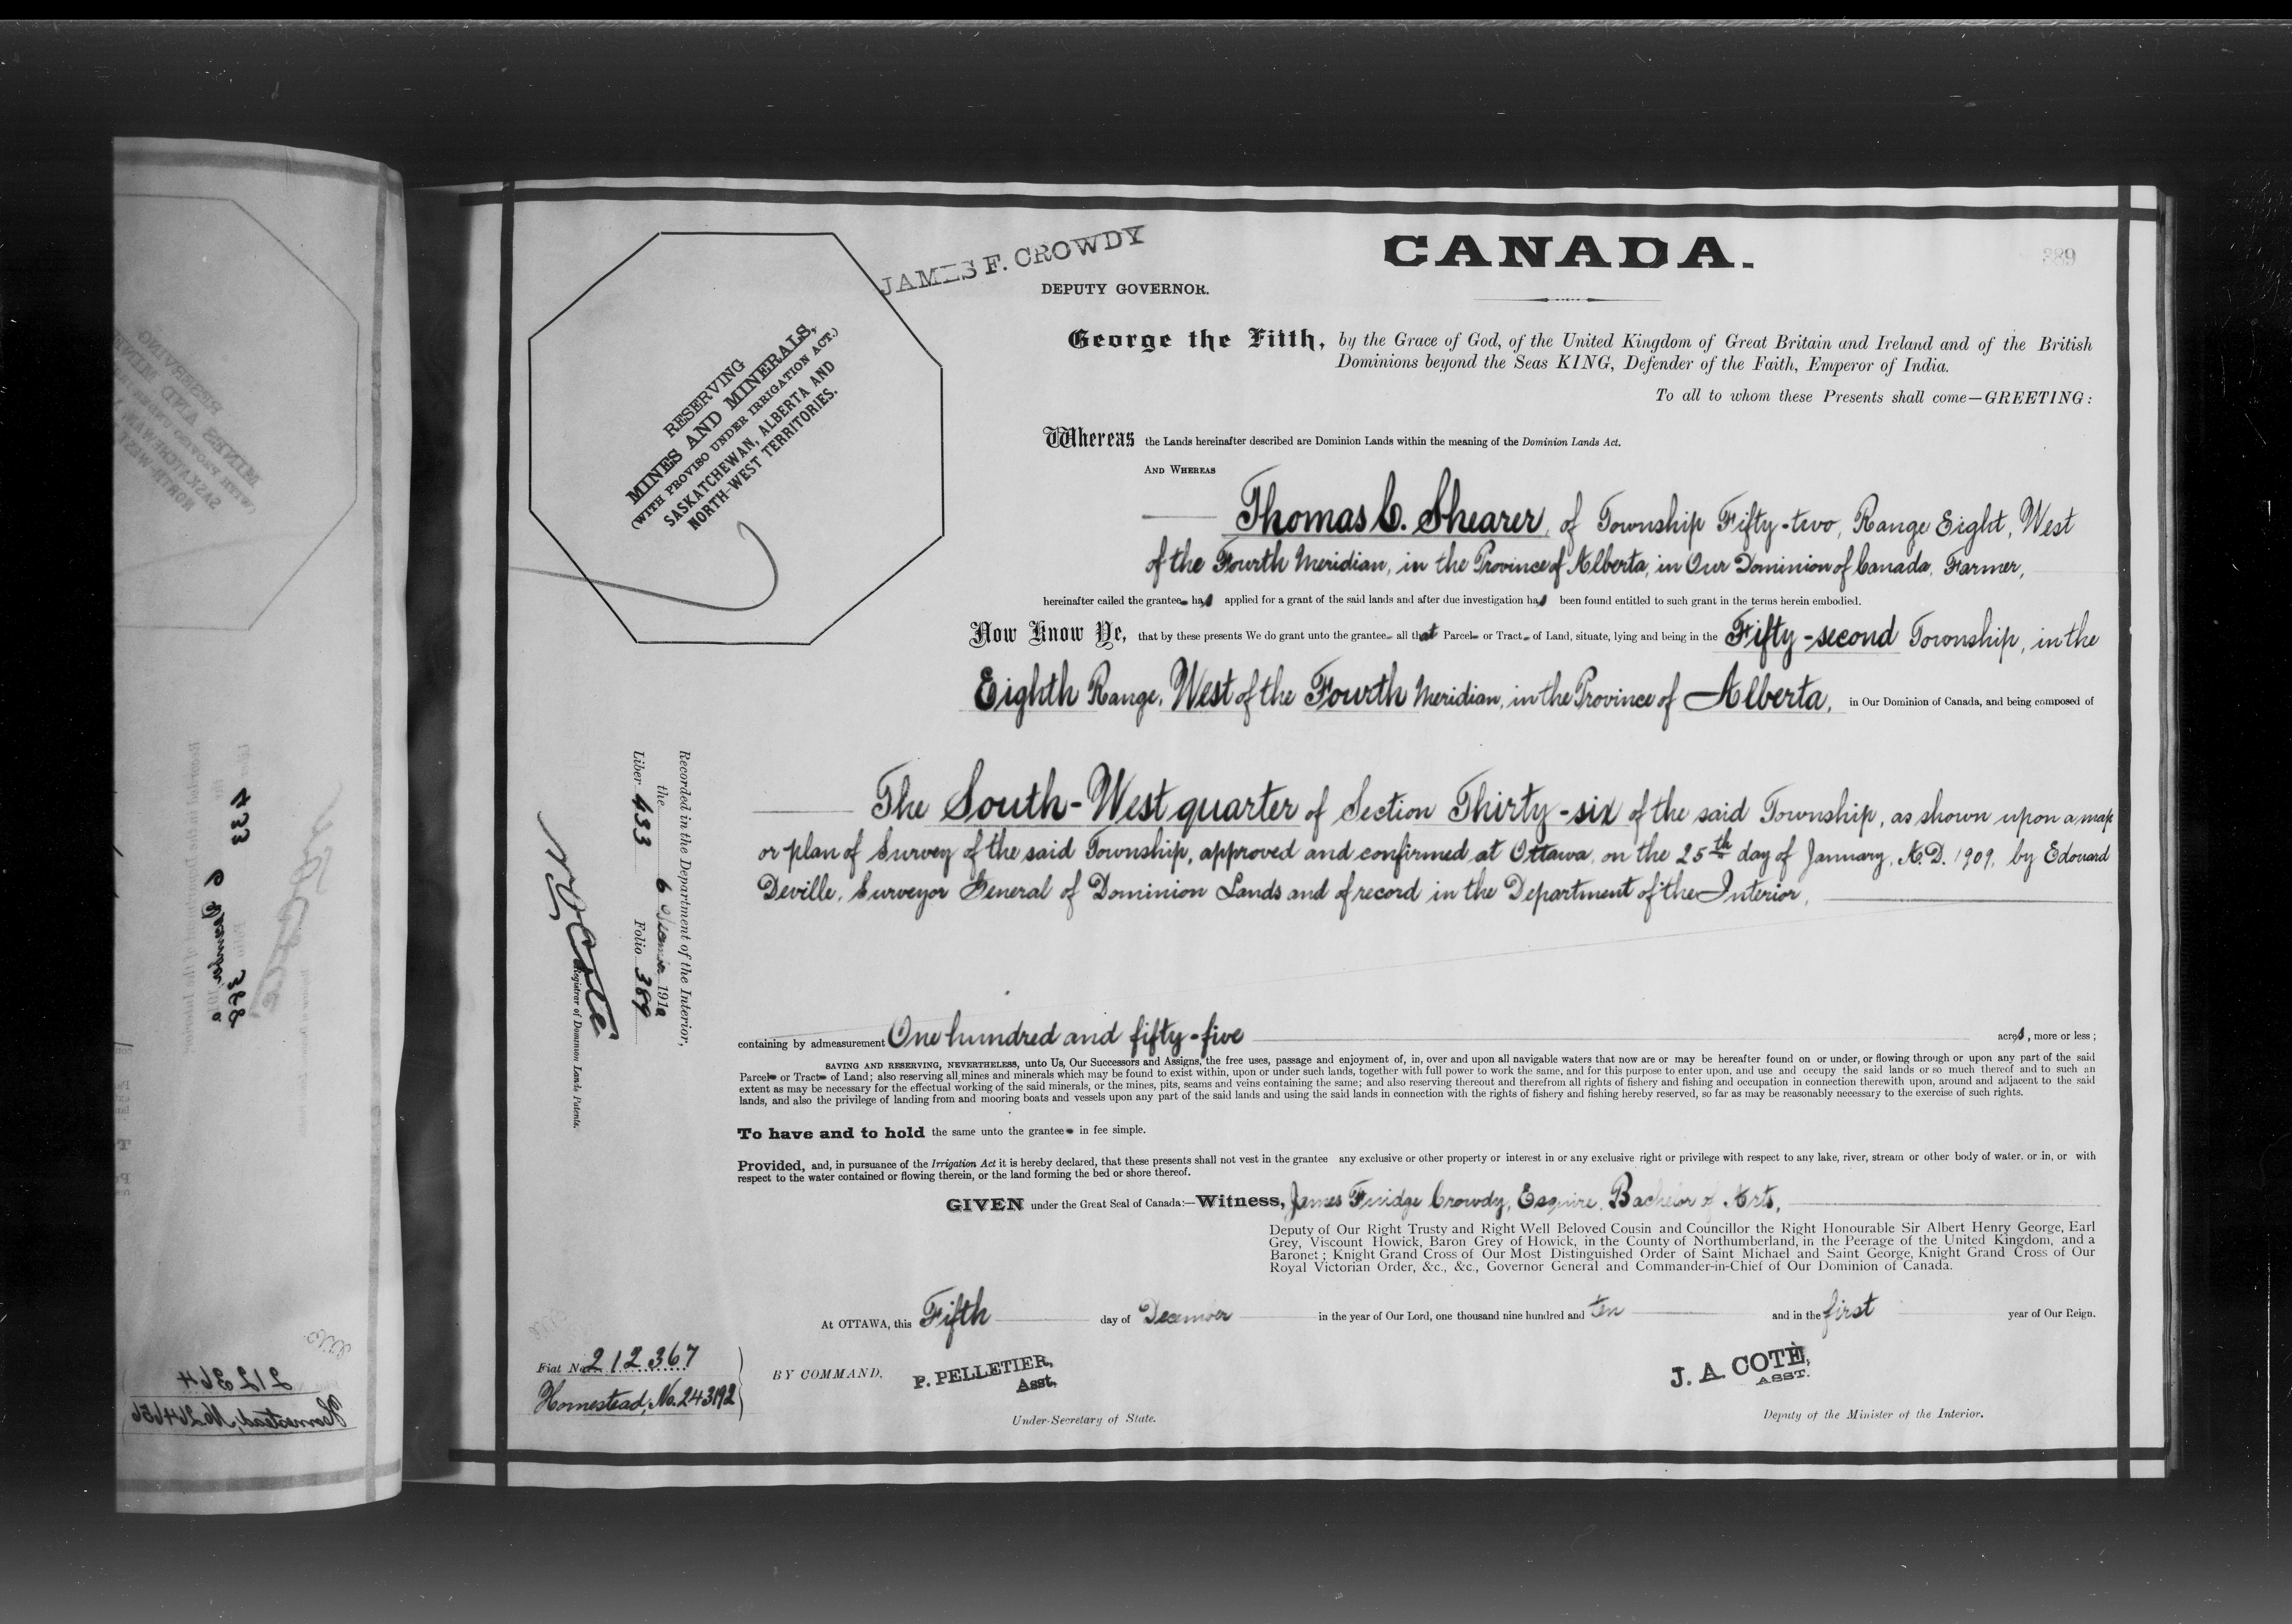 JAMES F. CROWDY
DEPUTY GOVERNOR.
CANADA.
389
RESERVING
MINES AND MINERALS,
(WITH PROVISO UNDER IRRIGATION ACT.)
SASKATCHEWAN, ALBERTA AND
NORTH-WEST TERRITORIES.
George the Fifth, by the Grace of God, of the United Kingdom of Great Britain and Ireland and of the British
Dominions beyond the Seas KING, Defender of the Faith, Emperor of India.
To all to whom these Presents shall come—GREETING:
Whereas the Lands hereinafter described are Dominion Lands within the meaning of the Dominion Lands Act.
AND WHEREAS
Thomas C. Shearer, of Township Fifty-two, Range Eight, West
of the Fourth Meridian, in the Province of Alberta, in Our Dominion of Canada, Farmer,
hereinafter called the grantee has applied for a grant of the said lands and after due investigation has been found entitled to such grant in the terms herein embodied.
Now Know Ye, that by these presents We do grant unto the grantee all that Parcel or Tract of Land, situate, lying and being in the Fifty-second Township, in the
Eighth Range, West of the Fourth Meridian, in the Province of Alberta, in Our Dominion of Canada, and being composed of
The South-West quarter of Section Thirty-six of the said Township, as shown upon a map
or plan of Survey of the said Township, approved and confirmed at Ottawa, on the 25th day of January, A.D. 1909, by Edouard
Deville, Surveyor General of Dominion Lands and of record in the Department of the Interior,
containing by admeasurement One hundred and fifty-five acres, more or less;
SAVING AND RESERVING, NEVERTHELESS, unto Us, Our Successors and Assigns, the free uses, passage and enjoyment of, in, over and upon all navigable waters that now are or may be hereafter found on or under, or flowing through or upon any part of the said
Parcel or Tract of Land; also reserving all mines and minerals which may be found to exist within, upon or under such lands, together with full power to work the same, and for this purpose to enter upon, and use and occupy the said lands or so much thereof and to such an
extent as may be necessary for the effectual working of the said minerals, or the mines, pits, seams and veins containing the same; and also reserving thereout and therefrom all rights of fishery and fishing and occupation in connection therewith upon, around and adjacent to the said
lands, and also the privilege of landing from and mooring boats and vessels upon any part of the said lands and using the said lands in connection with the rights of fishery and fishing hereby reserved, so far as may be reasonably necessary to the exercise of such rights.
To have and to hold the same unto the grantee in fee simple.
Provided, and, in pursuance of the Irrigation Act it is hereby declared, that these presents shall not vest in the grantee any exclusive or other property or interest in or any exclusive right or privilege with respect to any lake, river, stream or other body of water, or in, or with
respect to the water contained or flowing therein, or the land forming the bed or shore thereof.
GIVEN under the Great Seal of Canada:—Witness, James Fuidge Crowdy, Esquire, Bachelor of Arts,
Deputy of Our Right Trusty and Right Well Beloved Cousin and Councillor the Right Honourable Sir Albert Henry George, Earl
Grey, Viscount Howick, Baron Grey of Howick, in the County of Northumberland, in the Peerage of the United Kingdom, and a
Baronet; Knight Grand Cross of Our Most Distinguished Order of Saint Michael and Saint George, Knight Grand Cross of Our
Royal Victorian Order, &c., &c., Governor General and Commander-in-Chief of Our Dominion of Canada.
At OTTAWA, this Fifth day of December in the year of Our Lord, one thousand nine hundred and ten and in the first year of Our Reign.
BY COMMAND,
P. PELLETIER,
Asst.
Under-Secretary of State.
J. A. COTÉ,
ASST.
Deputy of the Minister of the Interior.
Recorded in the Department of the Interior,
the 6 December 1910
Liber 433 Folio 389
Registrar of Dominion Lands Patents.
Fiat No. 212367
Homestead, No. 243192
433
6 December 1910
388
212364
Homestead, No 264656